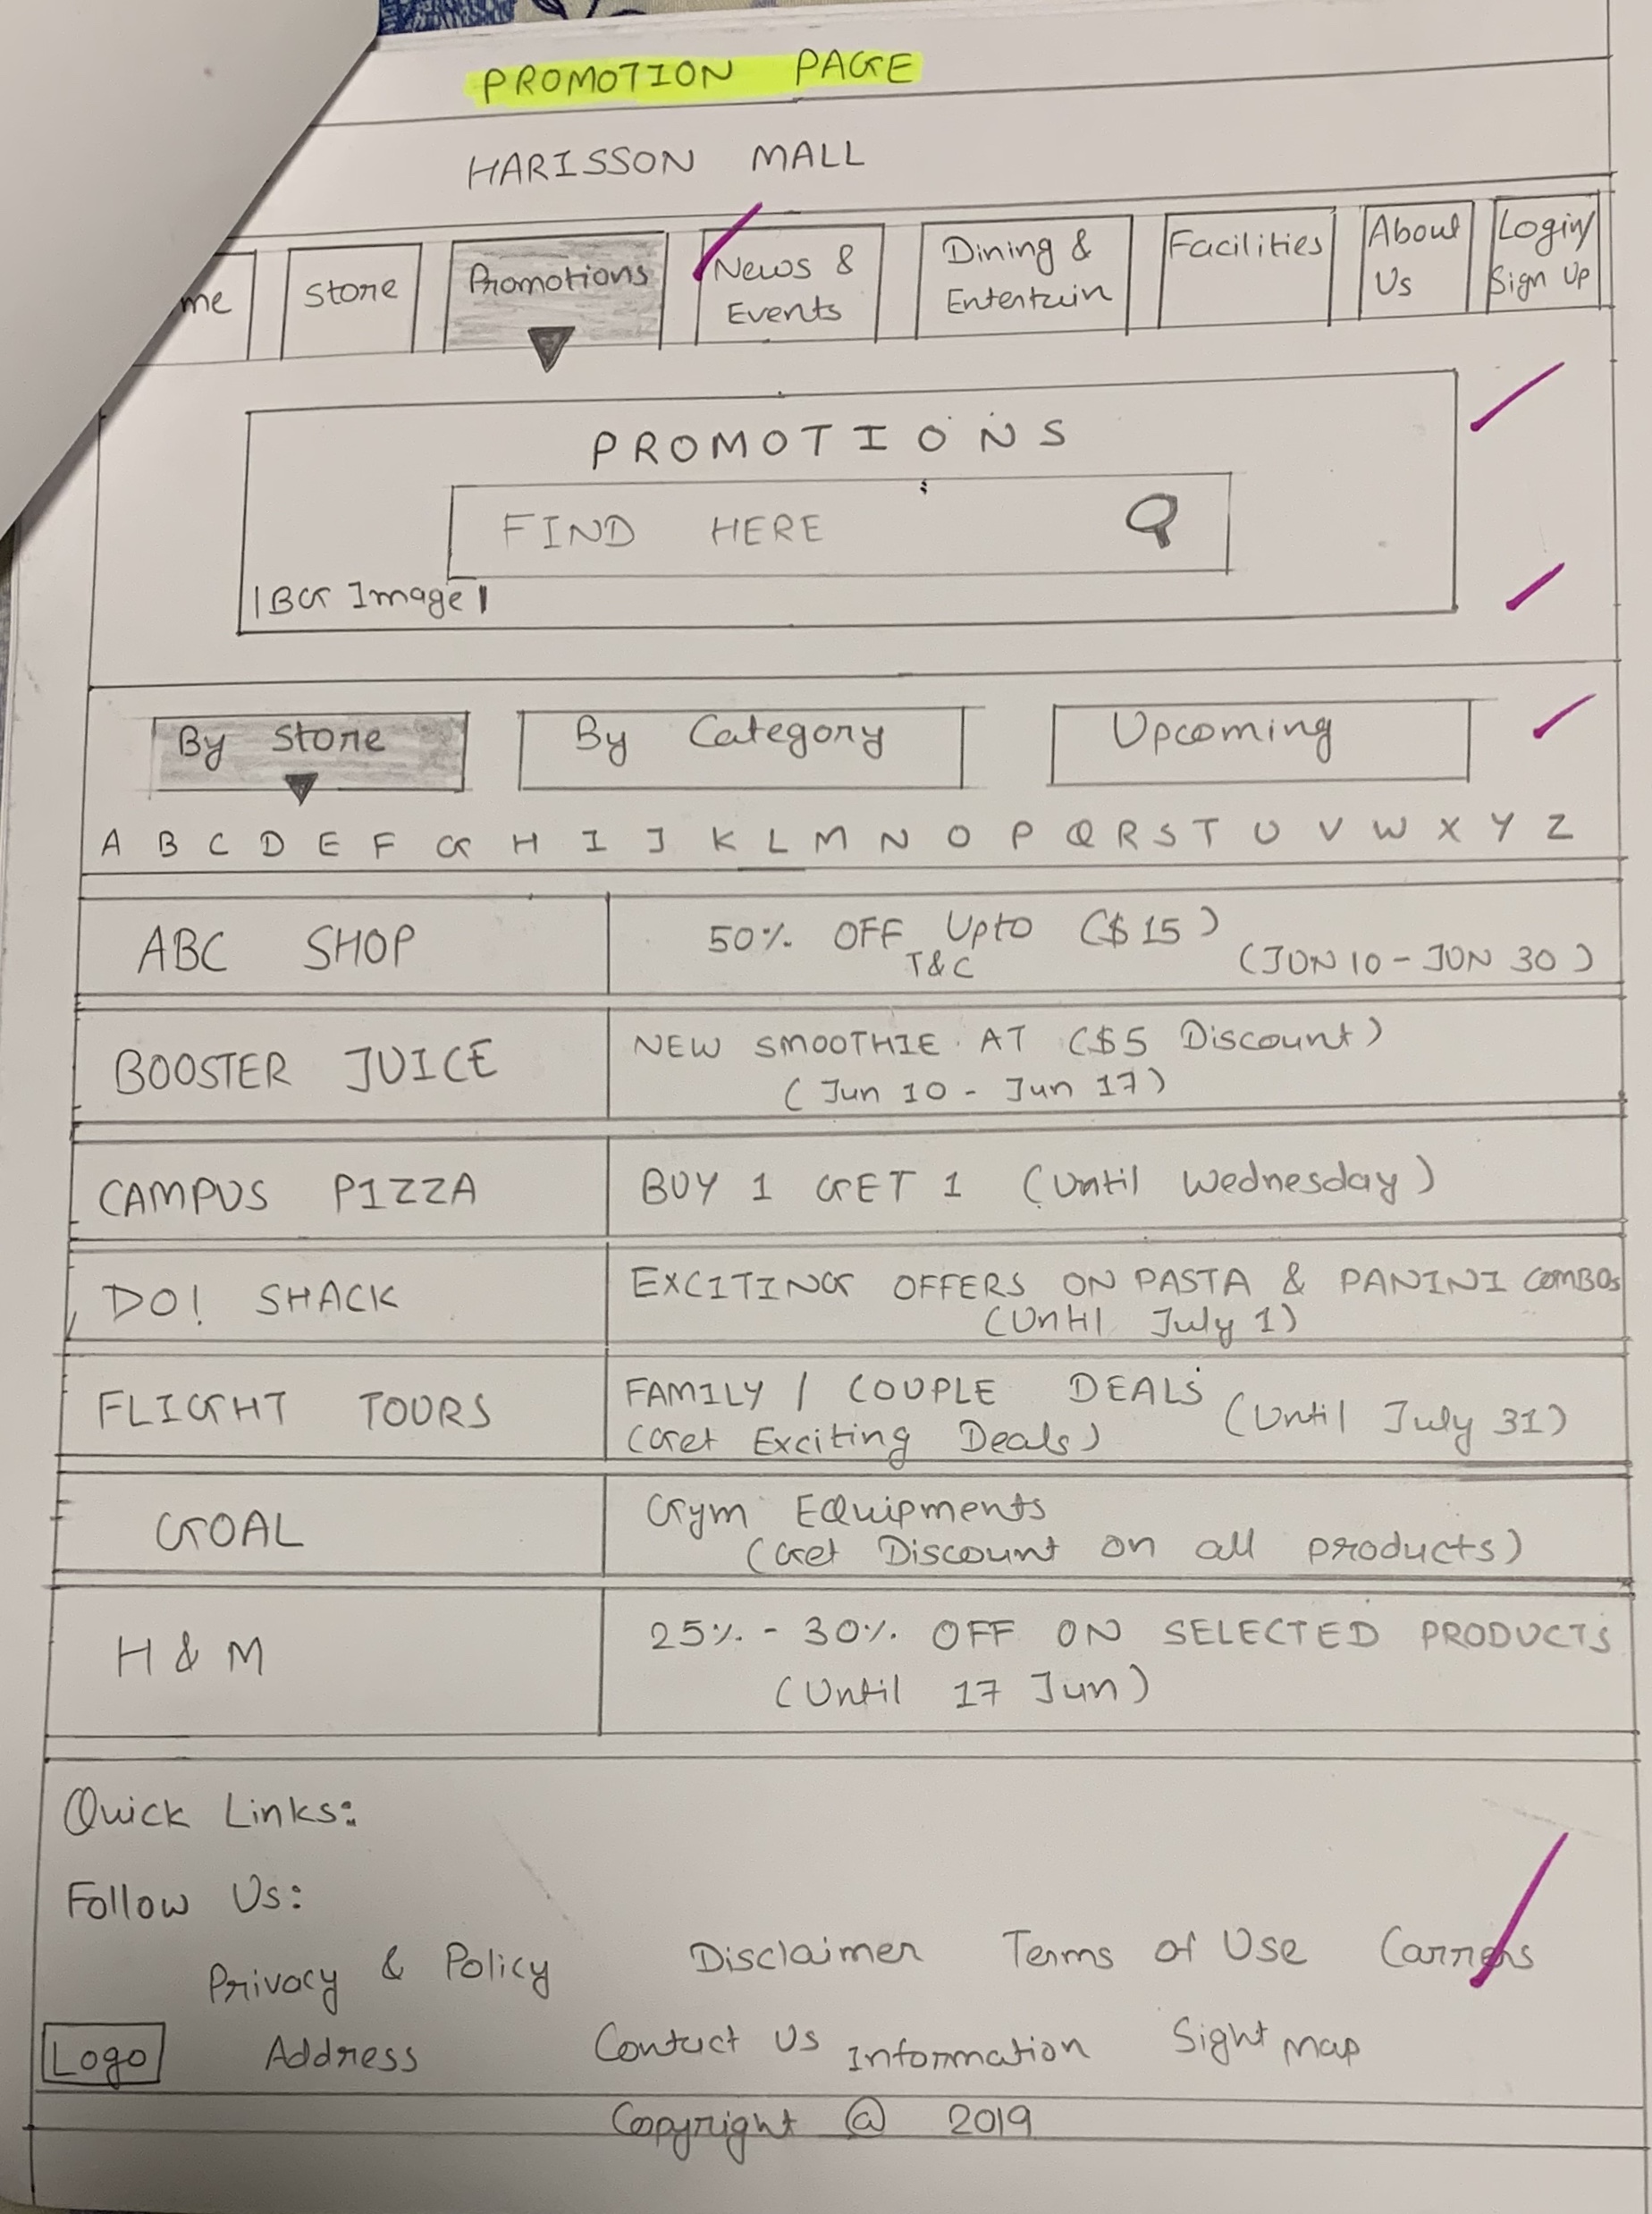 PROMOTION PAGE
HARISSON MALL
me Store Promotions News & Events Dining & Entertain Facilities About Us Login/ Sign Up
PROMOTIONS
FIND HERE
|BG Image|
By Store By Category Upcoming
A B C D E F G H I J K L M N O P Q R S T U V W X Y Z
ABC SHOP
50% OFF Upto ($15)
T&C (JUN 10 - JUN 30)
BOOSTER JUICE
NEW SMOOTHIE AT ($5 Discount)
(Jun 10 - Jun 17)
CAMPUS PIZZA
BUY 1 GET 1 (Until Wednesday)
DO! SHACK
EXCITING OFFERS ON PASTA & PANINI COMBOs
(Until July 1)
FLIGHT TOURS
FAMILY / COUPLE DEALS
(Get Exciting Deals) (Until July 31)
GOAL
Gym Equipments
(Get Discount on all products)
H & M
25% - 30% OFF ON SELECTED PRODUCTS
(Until 17 Jun)
Quick Links:
Follow Us:
Privacy & Policy Disclaimer Terms of Use
Logo Address Contact Us Information Sight map
Copyright @ 2019